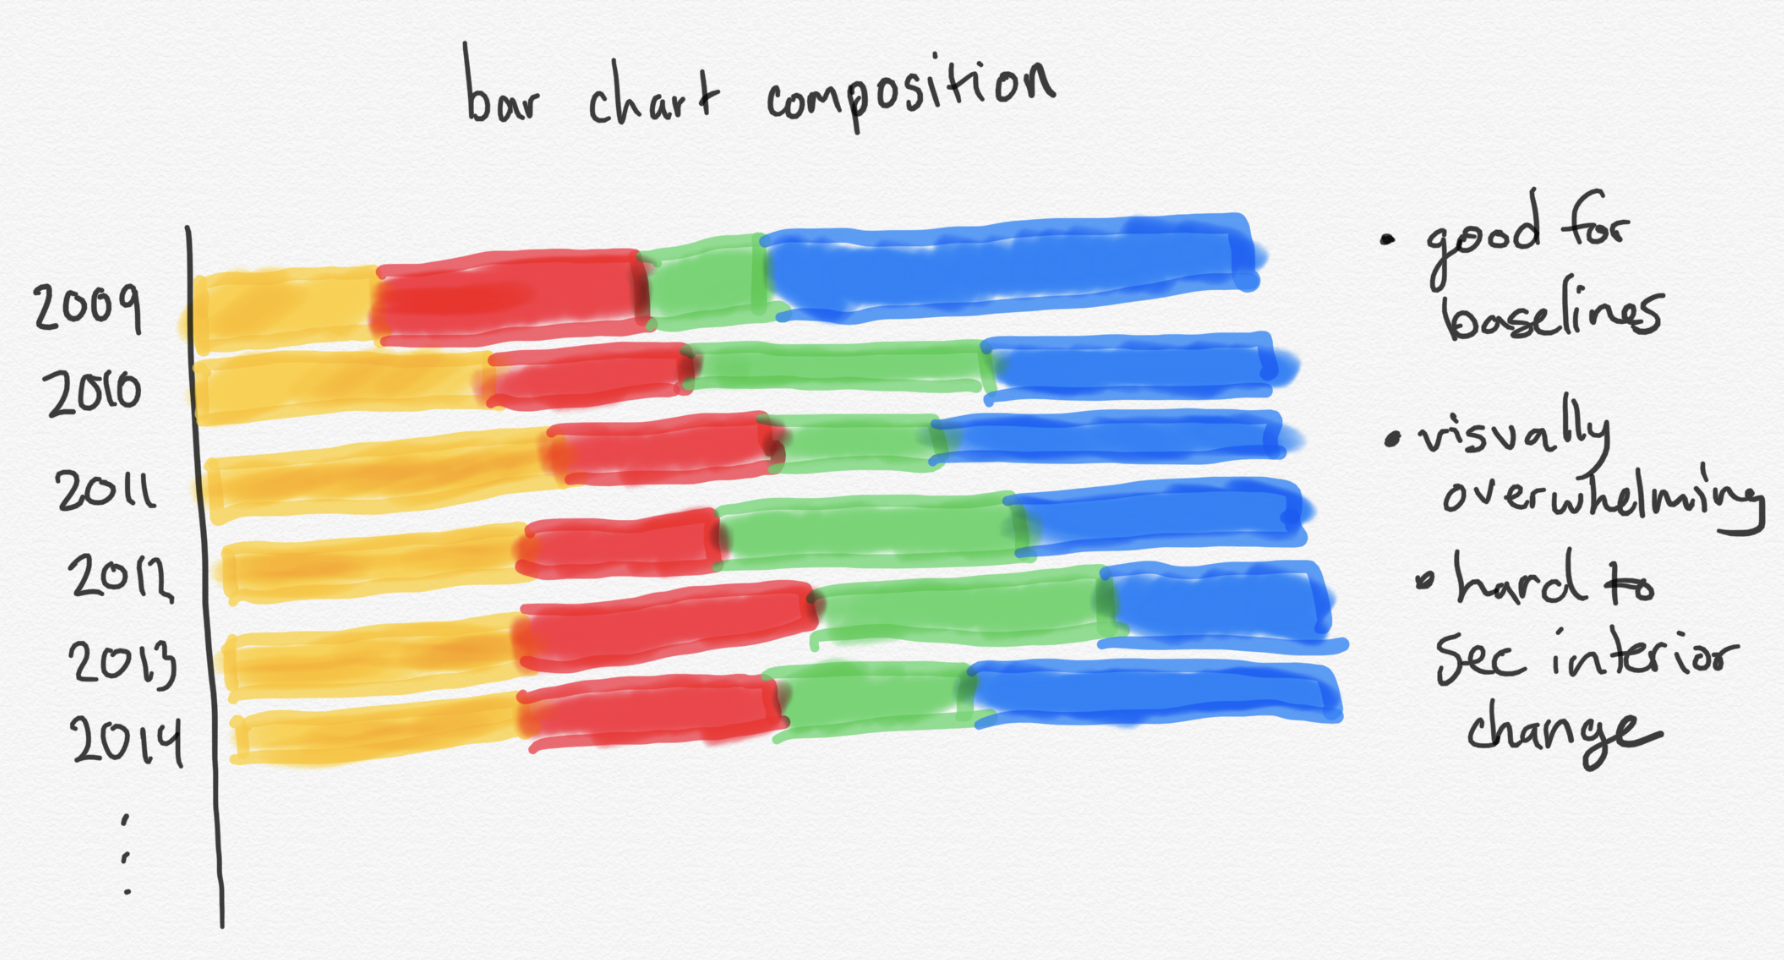 bar chart composition
2009
2010
2011
2012
2013
2014
• good for
baselines
• visually
overwhelming
• hard to
see interior
change